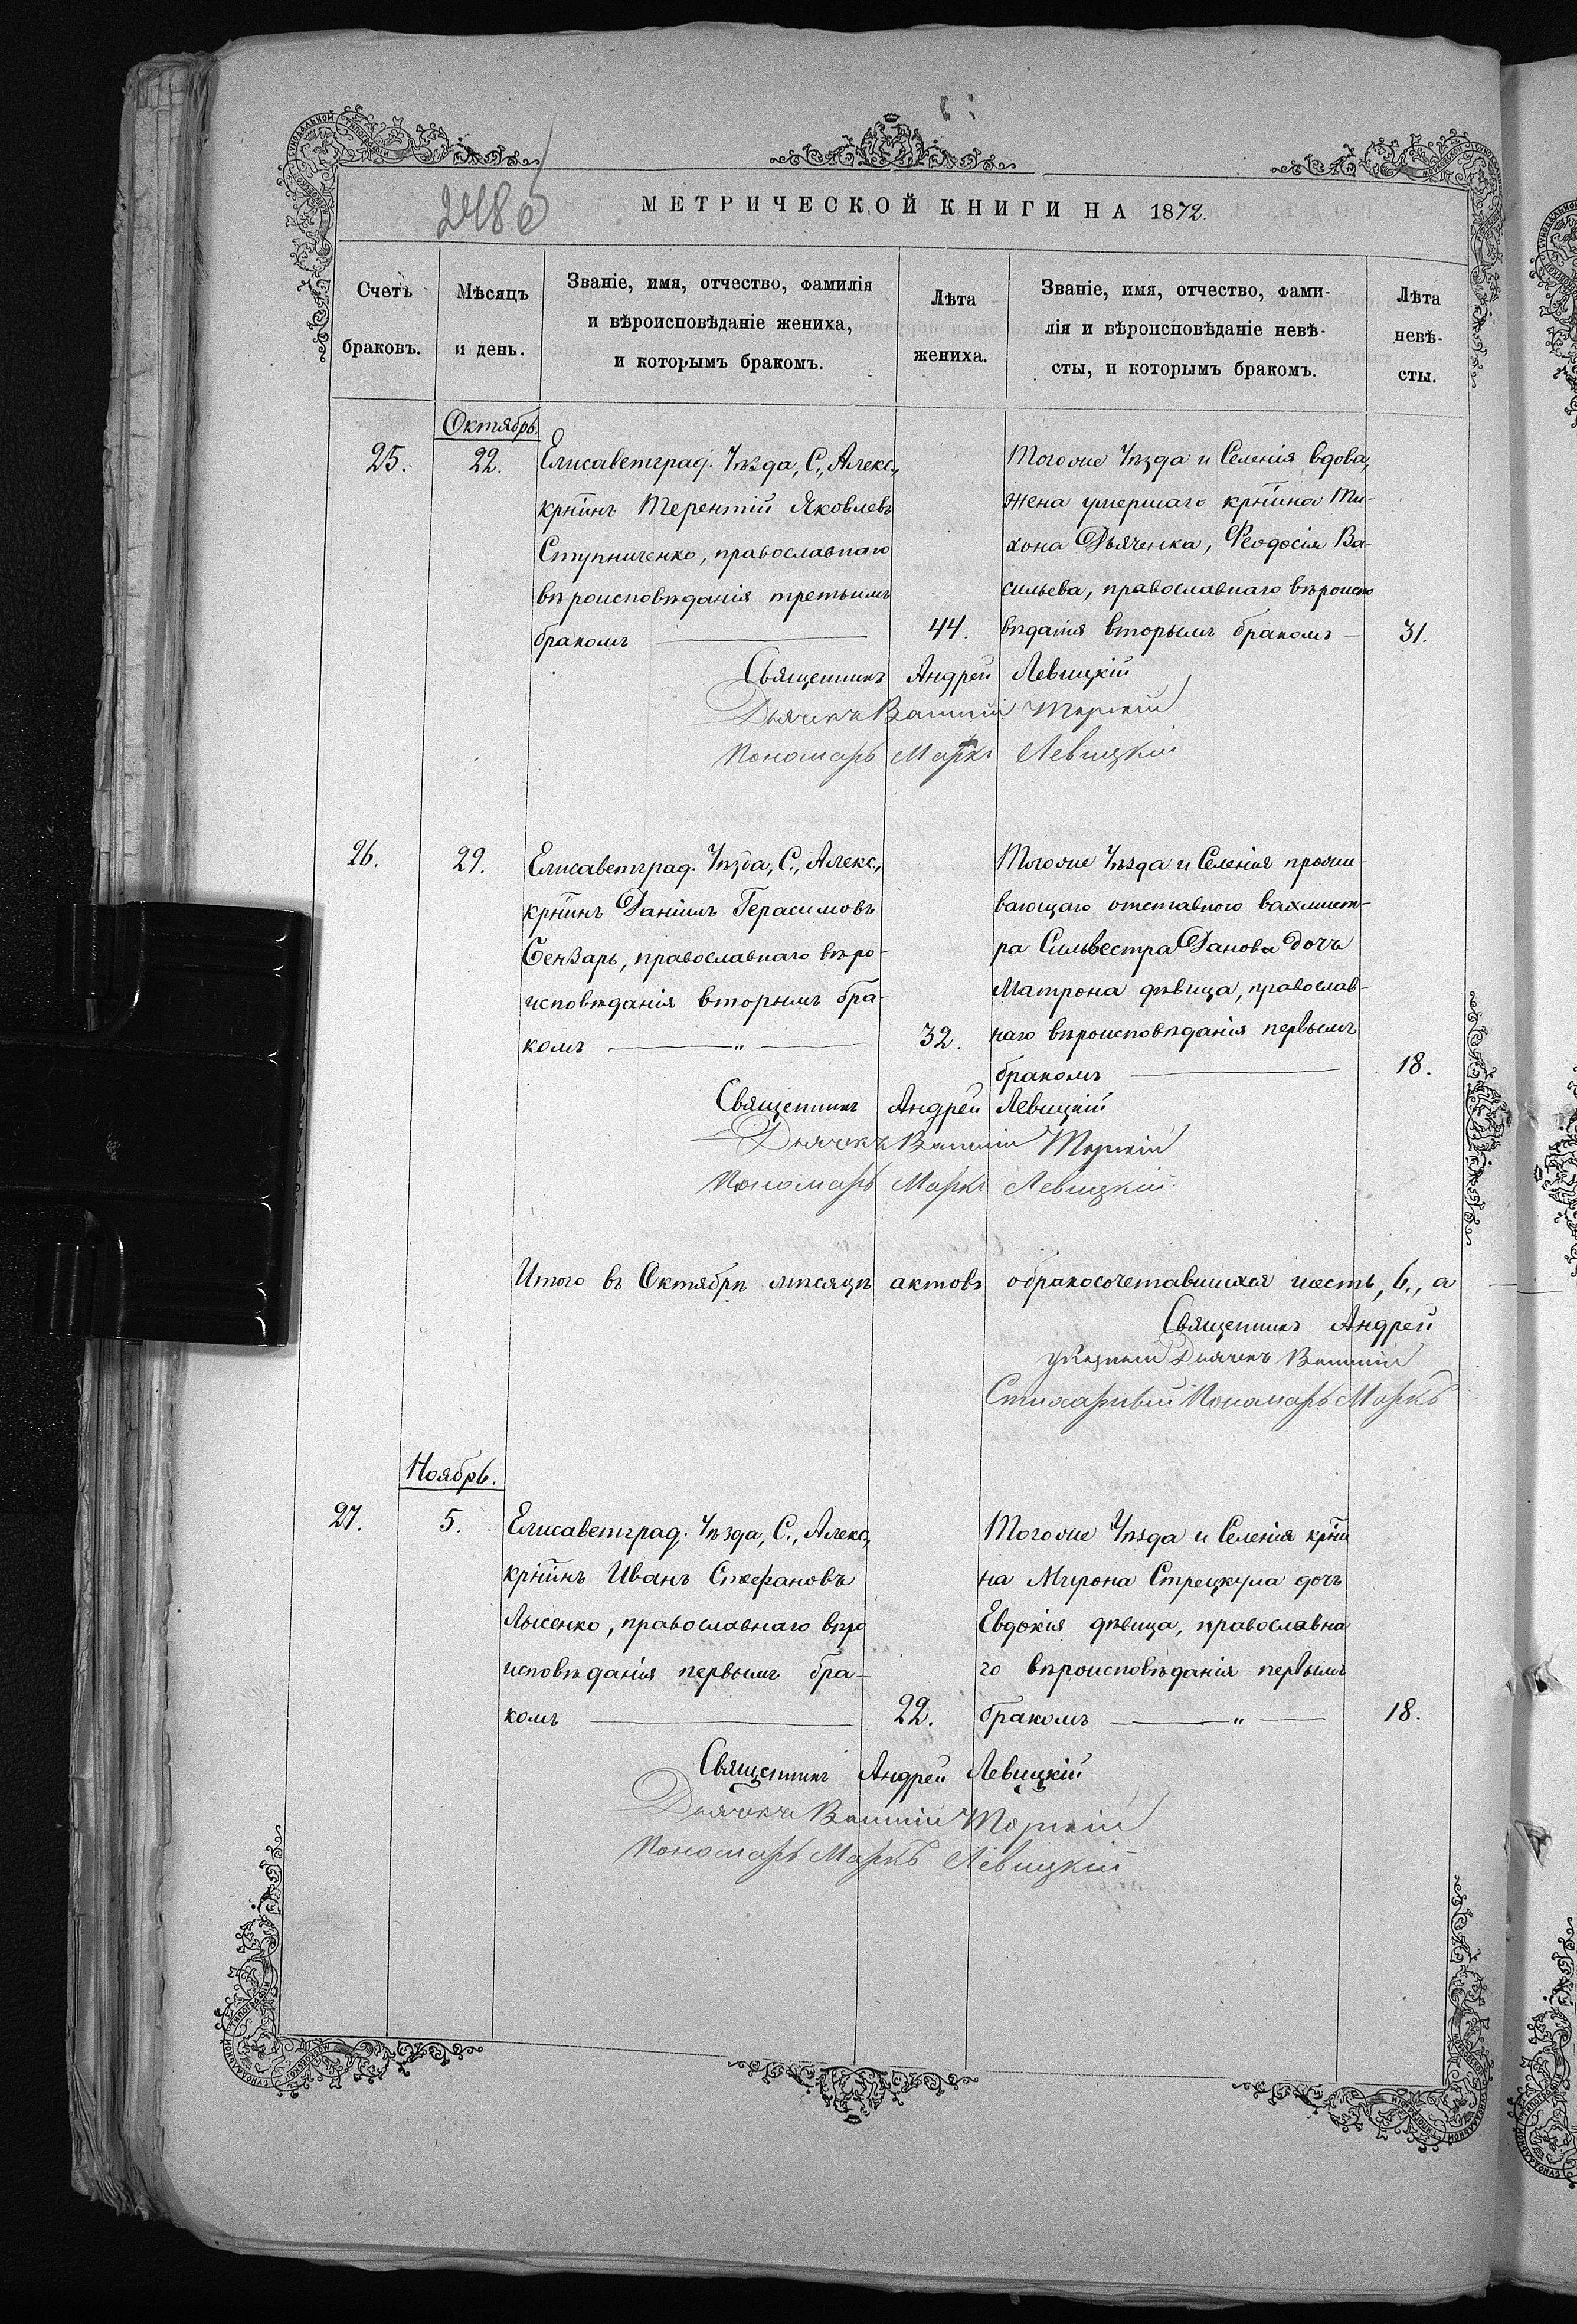 248 об
МЕТРИЧЕСКОЙ КНИГИ НА 1872.
Счетъ браковъ.
Мѣсяцъ и день.
Званіе, имя, отчество, фамилія
и вѣроисповѣданіе жениха,
и которымъ бракомъ.
Лѣта жениха.
Званіе, имя, отчество, фами-
лія и вѣроисповѣданіе невѣ-
сты, и которымъ бракомъ.
Лѣта невѣ-
сты.
Октябрь.
25.
22.
Елисаветград. Уѣзда, С., Алекс.,
крнинъ Терентій Яковлевъ
Ступниченко, православнаго
вѣроисповѣданія третьимъ
бракомъ
44.
Тогоже Уѣзда и Селенія вдова,
жена умершаго крнина Ти-
хона Дьяченка, Феодосія Ва-
сильева, православнаго вѣроиспо
вѣданія вторымъ бракомъ
31.
Священникъ Андрей Левицкій
Дьячекъ
Пономарь Маркъ Левицкій
26.
29.
Елисаветград. Уѣзда, С., Алекс.,
крнинъ Даніилъ Герасимовъ
Бензарь, православнаго вѣро-
исповѣданія вторымъ бра-
комъ
32.
Тогоже Уѣзда и Селенія прожи-
вающаго отставного вахмист-
ра Сильвестра Данова дочь
Матрона дѣвица, православ-
наго вѣроисповѣданія первымъ
бракомъ
18.
Священникъ Андрей Левицкій
Дьячекъ
Пономарь Маркъ Левицкій
Итого въ Октябрѣ мѣсяцѣ актовъ обракосочетавшихся шесть, 6., а
Священникъ Андрей
указный Дьячекъ
Стихарный Пономарь Маркъ
Ноябрь.
27.
5.
Елисаветград. Уѣзда, С., Алекс.,
крнинъ Иванъ Стефановъ
Лысенко, православнаго вѣро
исповѣданія первымъ бра-
комъ
22.
Тогоже Уѣзда и Селенія крни
на Мирона Стрецкула дочь
Евдокія дѣвица, православна
го вѣроисповѣданія первымъ
бракомъ
18.
Священникъ Андрей Левицкій
Дьячекъ
Пономарь Маркъ Левицкій